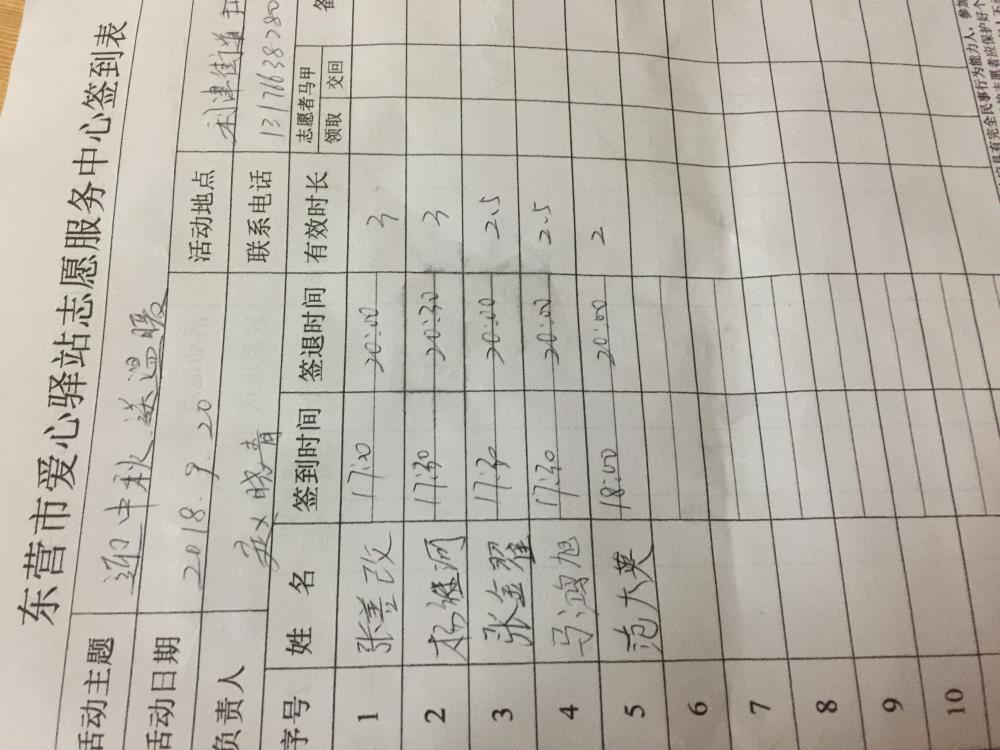 东营市爱心驿站志愿服务中心签到表
活动主题 迎中秋送温暖
活动日期 2018.9.20 活动地点 利津街道
负责人 赵晓青 联系电话 13176638780
序号 姓名 签到时间 签退时间 有效时长 志愿者马甲 领取 交回 备
1 张善改 17:00 20:00 3
2 杨继河 17:30 20:30 3
3 张金翠 17:30 20:00 2.5
4 马鸿旭 17:30 20:00 2.5
5 范大英 18:00 20:00 2
6
7
8
9
10
具有完全民事行为能力人，参加
志愿者应保护好个